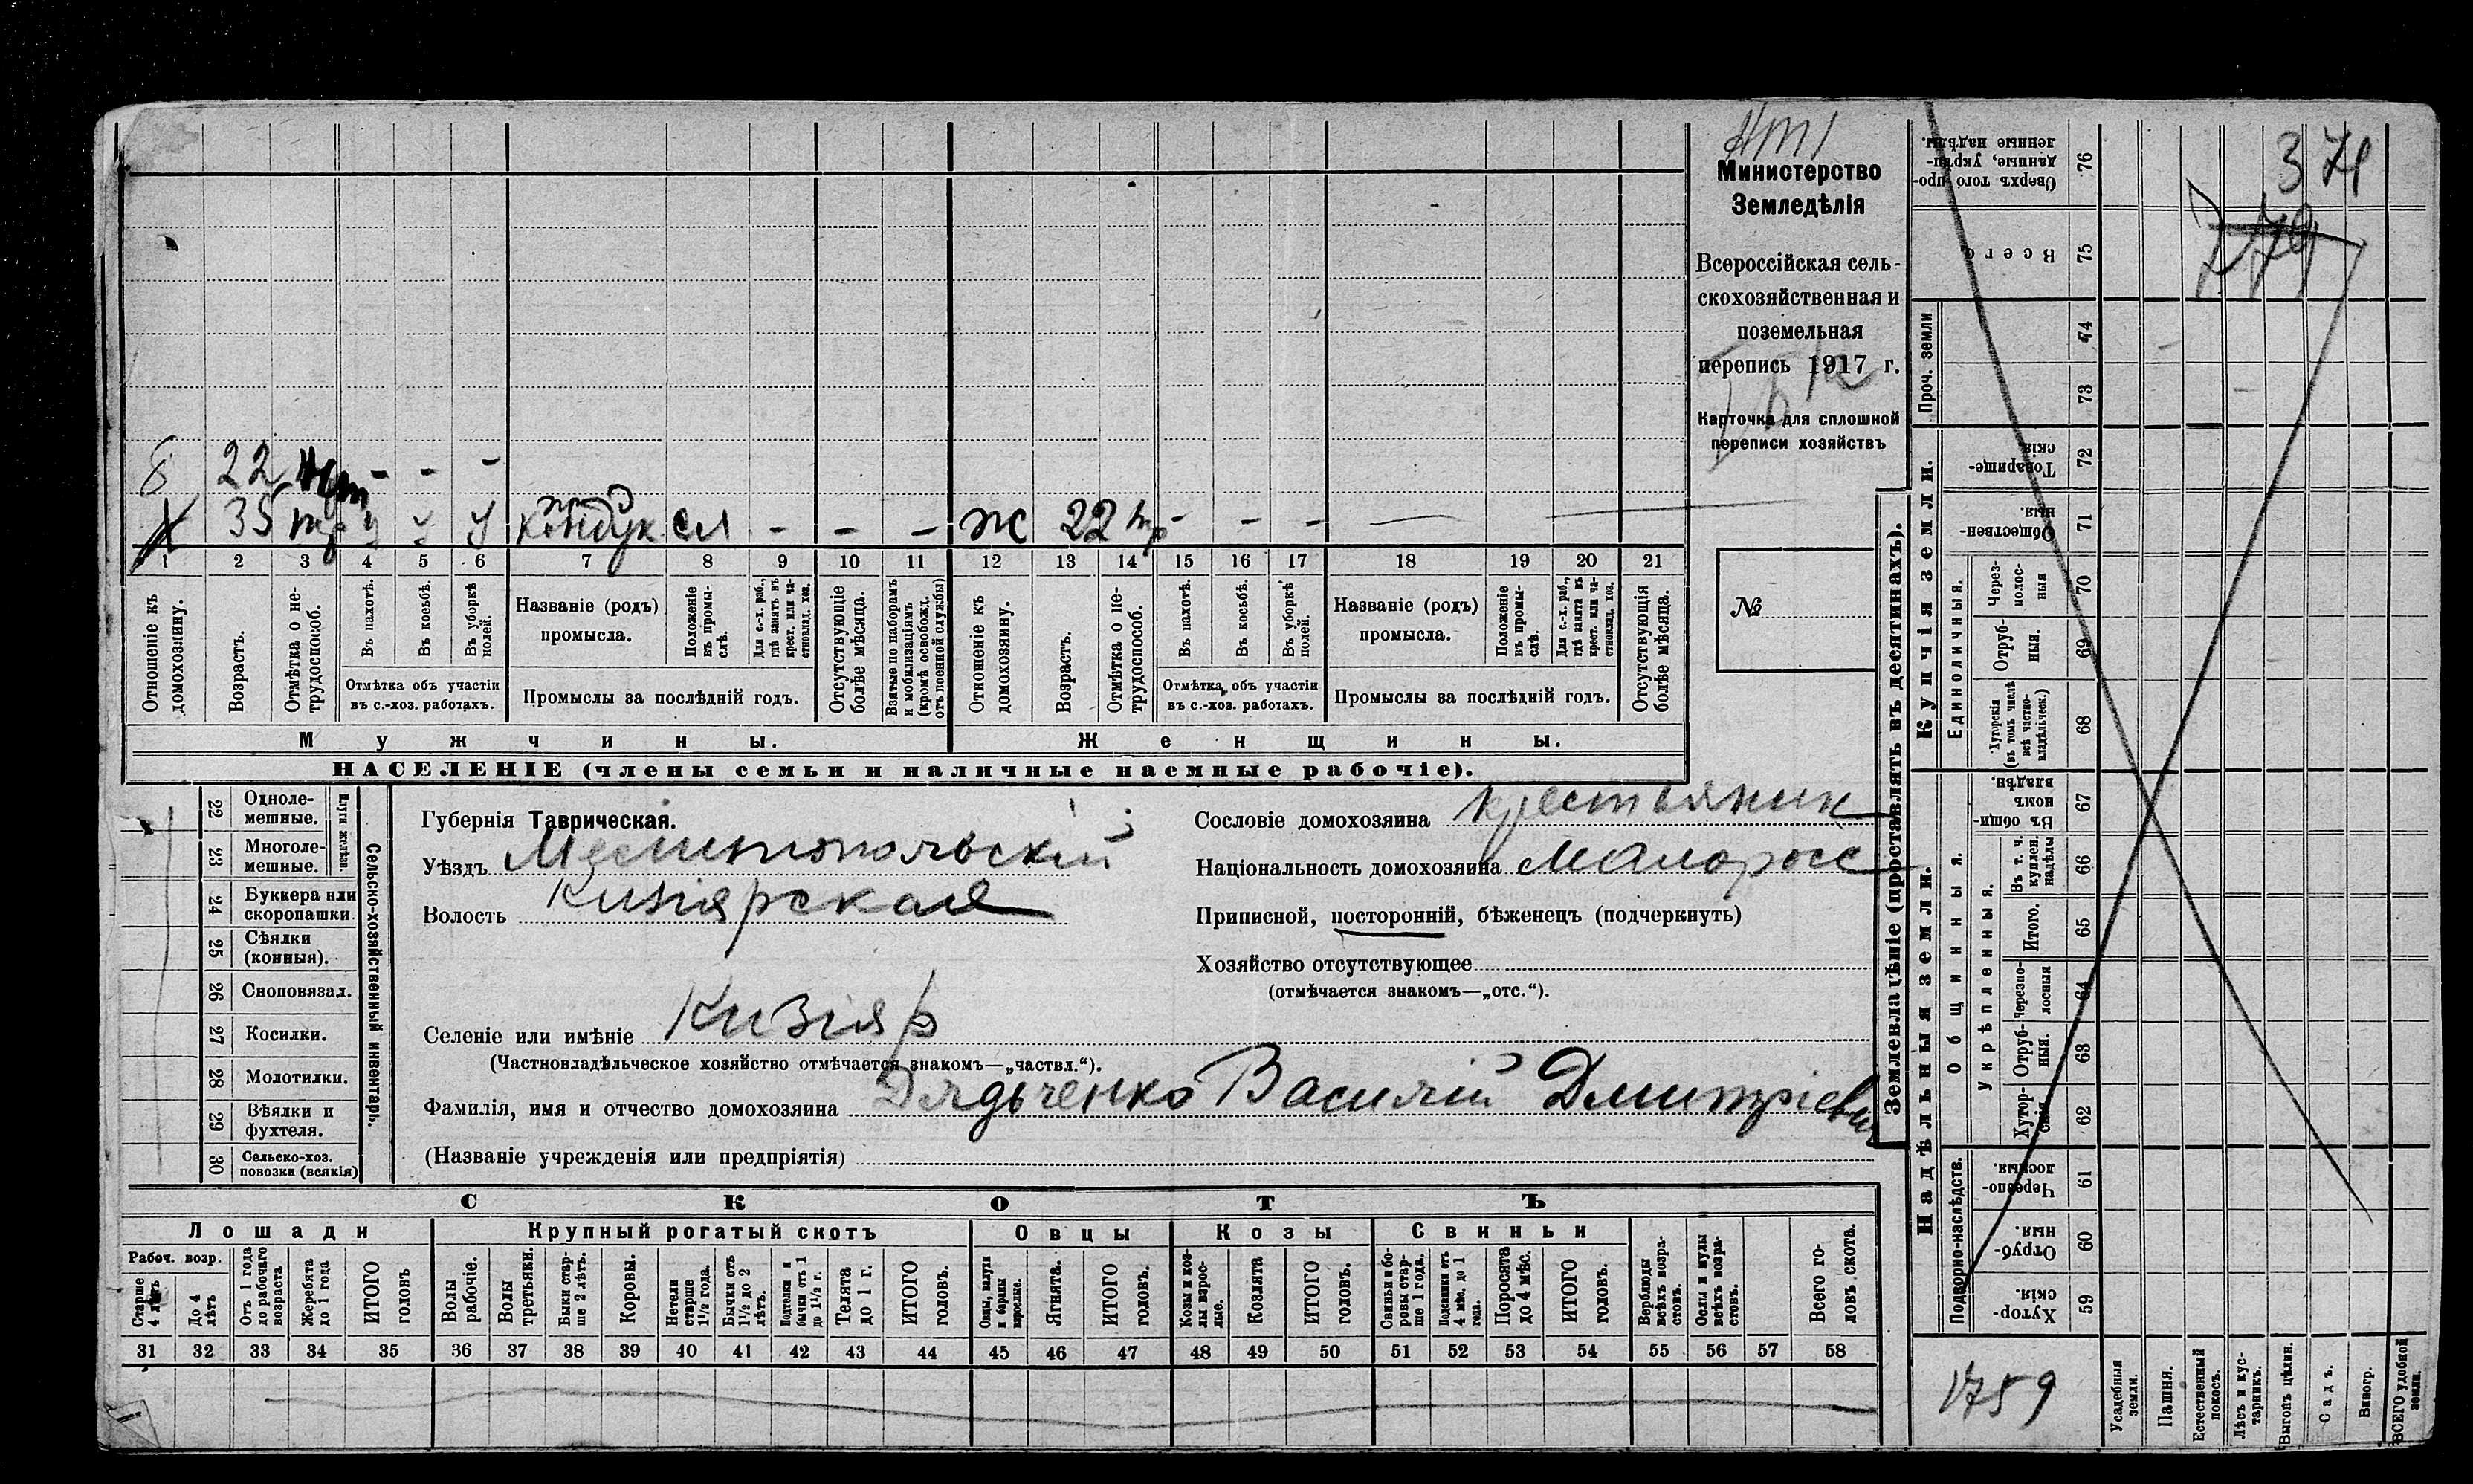 Министерство
Земледѣлія
Всероссійская сель-
скохозяйственная и
поземельная
перепись 1917 г.
Карточка для сплошной
переписи хозяйствъ
№
22 - - -
35 тр кондук. сл - - - ж 22 тр - - -
1 2 3 4 5 6 7 8 9 10 11 12 13 14 15 16 17 18 19 20 21
Отношеніе къ домохозяину.
Возрастъ.
Отмѣтка о не-трудоспособ.
Въ пахотѣ.
Въ косьбѣ.
Въ уборкѣ полей.
Отмѣтка объ участіи
въ с.-хоз. работахъ.
Названіе (родъ)
промысла.
Положеніе въ промы-слѣ.
Для с.-х. раб., гдѣ занятъ въ крест. или ча-стновлад. хоз.
Промыслы за послѣдній годъ.
Отсутствующіе болѣе мѣсяца.
Взятые по наборамъ и мобилизаціямъ (кромѣ освобожд. отъ военной службы)
Отношеніе къ домохозяину.
Возрастъ.
Отмѣтка о не-трудоспособ.
Въ пахотѣ.
Въ косьбѣ.
Въ уборкѣ полей.
Отмѣтка объ участіи
въ с.-хоз. работахъ.
Названіе (родъ)
промысла.
Положеніе въ промы-слѣ.
Для с.-х. раб., гдѣ занята въ крест. или ча-стновлад. хоз.
Промыслы за послѣдній годъ.
Отсутствующія болѣе мѣсяца.
Мужчины. Женщины.
НАСЕЛЕНІЕ (члены семьи и наличные наемные рабочіе).
22 Однолемешные.
23 Многолемешные.
Плуги желѣзн.
24 Буккера или скоропашки.
25 Сѣялки (конныя).
26 Сноповязал.
27 Косилки.
28 Молотилки.
29 Вѣялки и фухтеля.
30 Сельско-хоз. повозки (всякія)
Сельско-хозяйственный инвентарь.
Губернія Таврическая.
Уѣздъ Мелитопольскій
Волость Кизіярская
Селеніе или имѣніе Кизіяр
(Частновладѣльческое хозяйство отмѣчается знакомъ—„частвл.“).
Фамилія, имя и отчество домохозяина Дядьченко Василій Дмитріевич
(Названіе учрежденія или предпріятія)
Сословіе домохозяина крестьянин
Національность домохозяина Малоросс
Приписной, посторонній, бѣженецъ (подчеркнуть)
Хозяйство отсутствующее
(отмѣчается знакомъ—„отс.“).
СКОТЪ
Лошади Крупный рогатый скотъ Овцы Козы Свиньи
Рабоч. возр.
Старше 4 лѣтъ
До 4 лѣтъ
Отъ 1 года до рабочаго возраста
Жеребята до 1 года
ИТОГО головъ
Волы рабочіе.
Волы третьяки.
Быки стар-ше 2 лѣтъ.
Коровы.
Нетели старше 1½ года.
Бычки отъ 1½ до 2 лѣтъ.
Подтелки и бычки отъ 1 до 1½ г.
Телята до 1 г.
ИТОГО головъ.
Овцы, валухи и бараны взрослые.
Ягнята.
ИТОГО головъ.
Козы и коз-лы взрос-лые.
Козлята
ИТОГО головъ.
Свиньи и бо-ровы стар-ше 1 года.
Подсвинки отъ 4 мѣс. до 1 года.
Поросята до 4 мѣс.
ИТОГО головъ.
Верблюды всѣхъ возра-стовъ.
Ослы и мулы всѣхъ возра-стовъ.
Всего го-ловъ скота.
31 32 33 34 35 36 37 38 39 40 41 42 43 44 45 46 47 48 49 50 51 52 53 54 55 56 57 58
Землевладѣніе (проставлять въ десятинахъ).
Надѣльныя земли. Купчія земли. Проч. земли
Подворно-наслѣдств.
Общинныя.
Укрѣпленныя.
Единоличныя.
Сверхъ того про-данные, укрѣп-ленные надѣлы. 76
Всего 75
74
73
Товарище-скія. 72
Обществен-ныя. 71
Через-полос-ныя 70
Отруб-ныя. 69
Хуторскія (въ томъ числѣ всѣ частно-владѣльческ.) 68
Въ общи-номъ владѣн. 67
Въ т. ч. куплен. надѣлы 66
Итого. 65
Черезпо-лосныя 64
Отруб-ныя. 63
Хутор-скія 62
Черезпо-лосныя. 61
Отруб-ныя. 60
Хутор-скія. 59
Усадебныя земли.
Пашня.
Естественный покосъ.
Лѣсъ и кус-тарникъ.
Выгонъ цѣлин.
Садъ.
Виногр.
ВСЕГО удобной земли.
371
779
1759